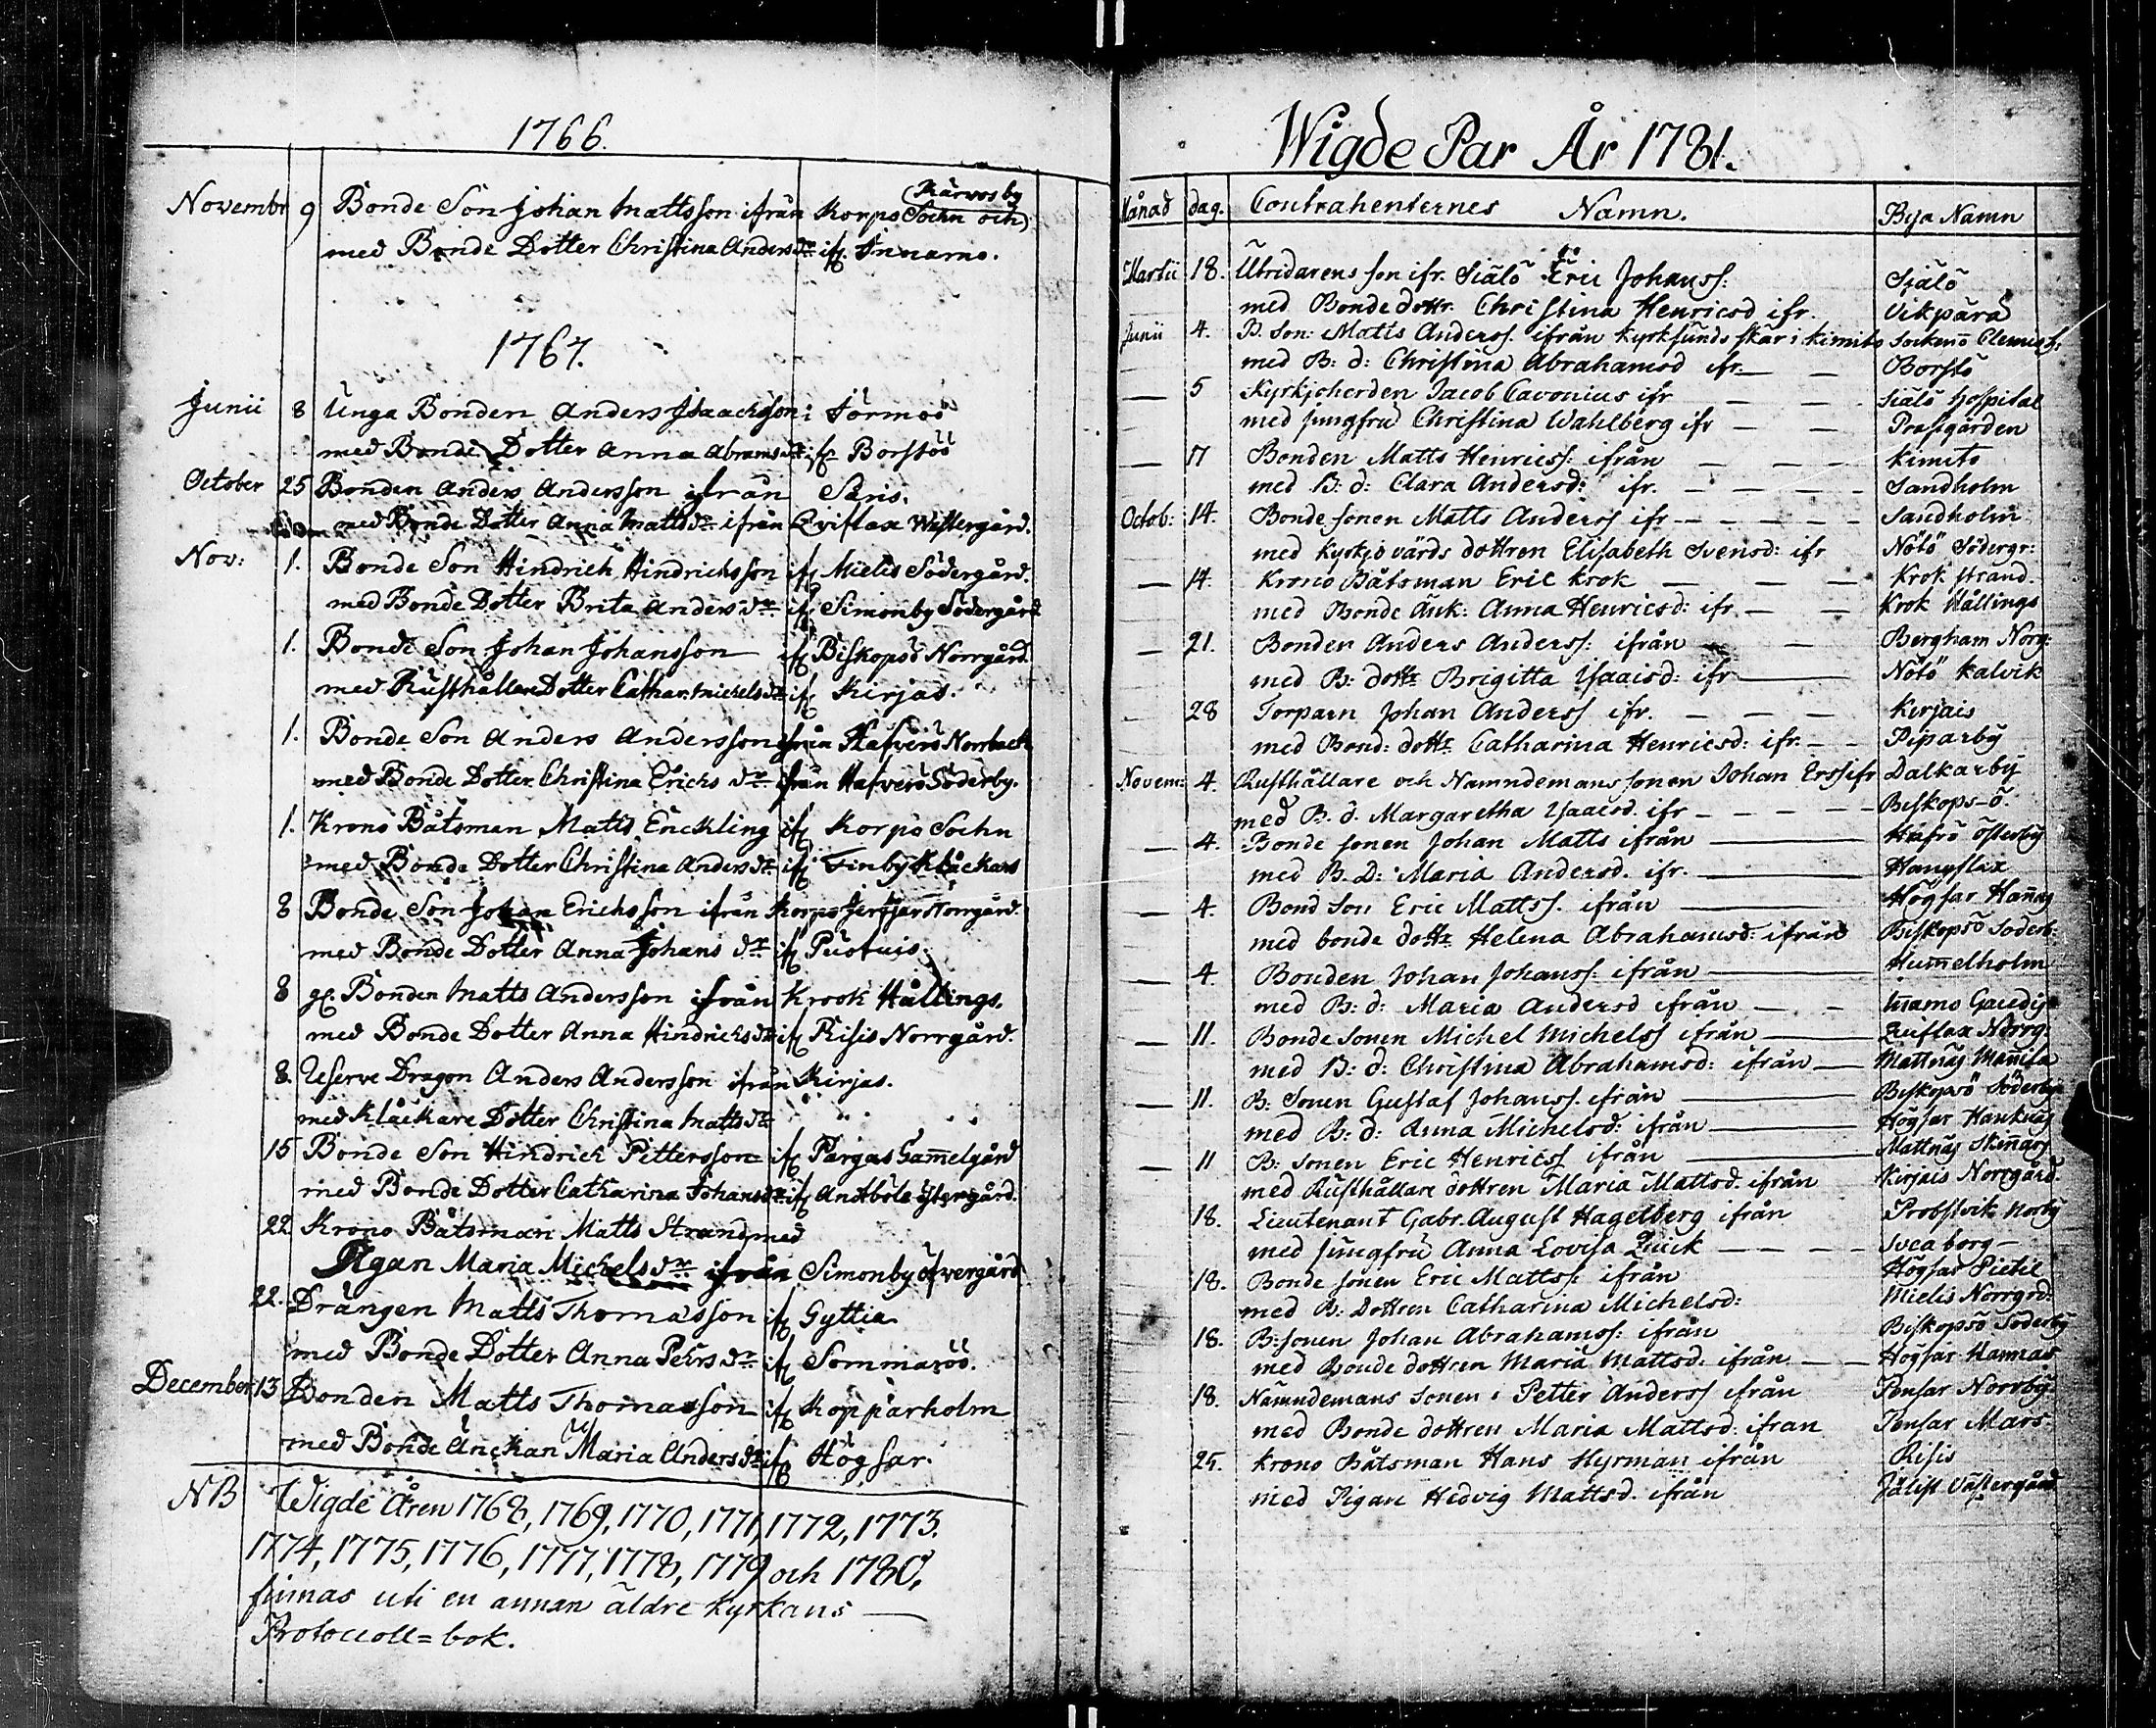 1766.
Novembr 9 Bonde Son Johan Mattsson ifrån Korpo Sochn och Kärvos by
med Bonde Dotter Christina Andersdr ifr. Innamo.
1767.
Junii 8 Unga Bonden Anders Isaachsson i Törmoö
med Bonde Dotter Anna Abramsdr ifr Borstöö
October 25 Bonden Anders Andersson ifrån Säris.
med Bonde Dotter Anna Mattsdr ifrån Qviflax Wästergård.
Nov: 1. Bonde Son Hindrich Hindrichsson ifr Mielis Södergård.
med Bonde Dotter Brita Andersdr ifr Simonby Södergård
1. Bonde Son Johan Johansson ifr Biskopsö Norrgård.
med Rusthållare Dotter Cathar. Michelsdr ifr Kirjas.
1. Bonde Son Anders Andersson ifrån Hafverö Norrback
med Bonde Dotter Christina Erichs dr ifrån Hafverö Söderby.
1. Krono Båtsman Matts Enckling ifr Korpo Sochn
med Bonde Dotter Christina Andersdr ifr Finby Klåckars
8 Bonde Son Johan Erichsson ifrån Korpo Norrgård.
med Bonde Dotter Anna Johans dr ifr
8 gl. Bonden Matts Andersson ifrån Krook Hållings.
med Bonde Dotter Anna Hindrichsdr ifr Risis Norrgård.
8. Reserve Dragon Anders Andersson ifrån Kirjas.
med Klåckare Dotter Christina Mattsdr
15 Bonde Son Hindrich Pettersson ifr Pargas Gammelgård
med Bonde Dotter Catharina Johansdr ifr Andböle Ystergård.
22 Krono Båtsman Matts Strand med
Pigan Maria Michelsdr ifrån Simonby Öfvergård
22. Drängen Matts Thomasson ifr Gyttia
med Bonde Dotter Anna Pehrs dr ifr Sommaröö.
December 13 Bonden Matts Thomasson ifr Kopparholm
med Bonde Änckan Maria Andersdr ifr Högsar.
NB Wigde Åren 1768, 1769, 1770, 1771, 1772, 1773.
1774, 1775, 1776, 1777, 1778, 1779 och 1780,
finnas uti en annan äldre kyrkans
Protocoll=bok.
Wigde Par År 1781.
Månad dag. Contrahenternes Namn. Bya Namn
Martii 18. Utridarens son ifr. Själö Eric Johanss: Själö
med Bonde dottr. Christina Henricsd ifr. Vikpära
Junii 4. B. Son: Matts Anderss. ifrån Kyrksundsskär i Kimito
med B: d: Christina Abrahamsd ifr. Borstö
5 Kyrkjoherden Jacob Cavonius ifr Själö Hospital
med Jungfru Christina Wahlberg ifr Prästgården
17 Bonden Matts Henricss. ifrån Kimito
med B: d: Clara Andersd: ifr. Sandholm
Octob: 14. Bonde sonen Matts Anderss ifr Sandholm
med Kyrkjovärds dottren Elisabeth Svensd: ifr Nötö Södergr:
14. Krono Båtsman Eric Krok Krok strand.
med Bonde Änk: Anna Henricsd: ifr. Krok Hållings
21. Bonden Anders Anderss: ifrån Bergham Norg:
med B: dottr Brigitta Isaacsd: ifr Nötö Kalvik
28 Torparn Johan Anderss ifr. Kirjais
med Bond: dottr Catharina Henricsd: ifr. Piparby
Novem: 4. Rusthållare och Namndemans sonen Johan Erss ifr Dalkarby
med B. d. Margaretha Isaacsd. ifr Biskops-ö.
4. Bonde sonen Johan Matts ifrån Hafrö Österby
med B. D: Maria Andersd. ifr. Hangslax
4. Bond Son Eric Mattss. ifrån Högsar Hannas
med bonde dottr Helena Abrahamsd: ifrån Biskopsö Söderb:
4. Bonden Johan Johanss: ifrån Hummelholm
med B: d: Maria Andersd ifrån
11. Bonde Sonen Michel Michelss ifrån Quiflax Norrg:
med B: d: Christina Abrahamsd: ifrån Mattnäs
11. B: Sonen Gustaf Johanss. ifrån Biskopsö Söderby
med B: d: Anna Michelsd: ifrån Högsar
11 B: Sonen Eric Henricss ifrån Mattnäs Skinnars
med Rusthållare dottren Maria Mattsd. ifrån Kirjais Norrgård.
18. Lieutenant Gabr. August Hagelberg ifrån Probstvik Norby
med Jungfru Anna Lovisa Quick Sveaborg
18. Bonde sonen Eric Mattss: ifrån Högsar Pietil
med B: Dottren Catharina Michelsd: Mielis Norrgrd:
18. B: sonen Johan Abrahamss: ifrån Biskopsö Söderby
med Bonde dottren Maria Mattsd. ifrån Högsar Hannas
18. Nämndemans Sonen Petter Anderss ifrån Pensar Norrby
med Bonde dottren Maria Mattsd: ifran Pensar Mars
25. Krono Båtsman Hans Hyrman ifrån Risis
med Pigan Hedvig Mattsd. ifrån Västergård